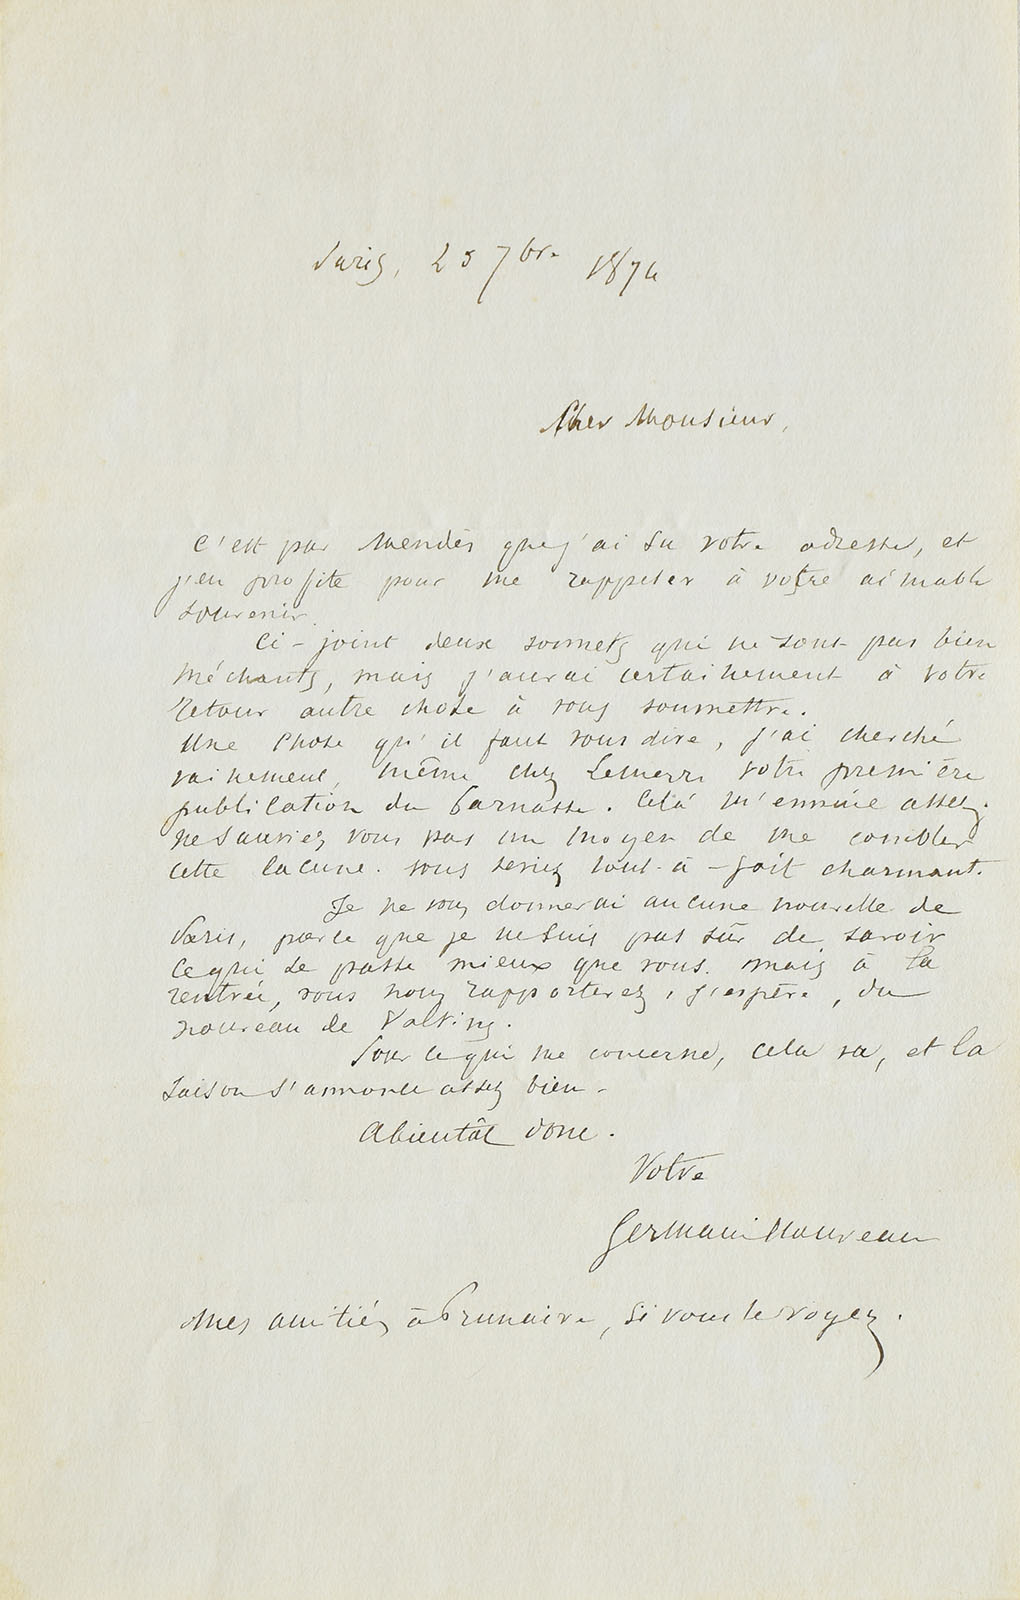 Paris, 25 7bre 1874
Cher Monsieur,
C'est par Mendès que j'ai su votre adresse, et
j'en profite pour me rappeler à votre aimable
souvenir.
Ci-joint deux sonnets qui ne sont pas bien
méchants, mais j'aurai certainement à votre
retour autre chose à vous soumettre.
Une chose qu'il faut vous dire, j'ai cherché
vainement, même chez Lemerre votre première
publication du Parnasse. Celà m'ennuie assez.
Ne sauriez vous pas un moyen de me combler
cette lacune. Vous seriez tout-à-fait charmant.
Je ne vous donnerai aucune nouvelle de
Paris, parce que je ne suis pas sûr de savoir
ce qui se passe mieux que vous. Mais à la
rentrée, vous nous rapporterez, j'espère, du
nouveau de
Pour ce qui me concerne, cela va, et la
saison s'annonce assez bien.
A bientôt donc.
Votre
Germain Nouveau
Mes amitiés à Prunaire, si vous le voyez.